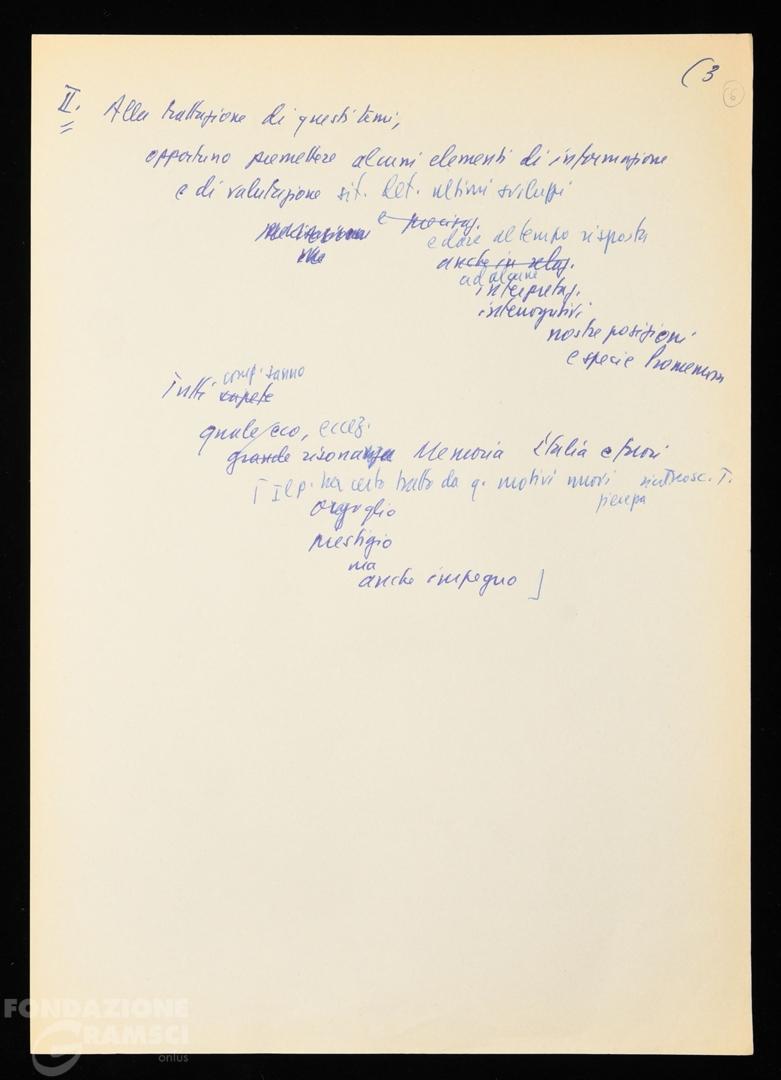 (3
6
II. Alla trattazione di questi temi,
opportuno premettere alcuni elementi di informazione
e di valutazione sit. det. ultimi sviluppi
e precisaz.
e dare al tempo risposta
anche in relaz.
ad alcune
interpretaz.
interrogativi
nostre posizioni
e specie Promemoria
comp. sanno
Tutti sapete
quale eco, eccez.
grande risonanza Memoria Italia e fuori
[Il p. ha certo tratto da q. motivi nuovi
orgoglio
prestigio
ma
anche impegno]
FONDAZIONE
GRAMSCI
onlus